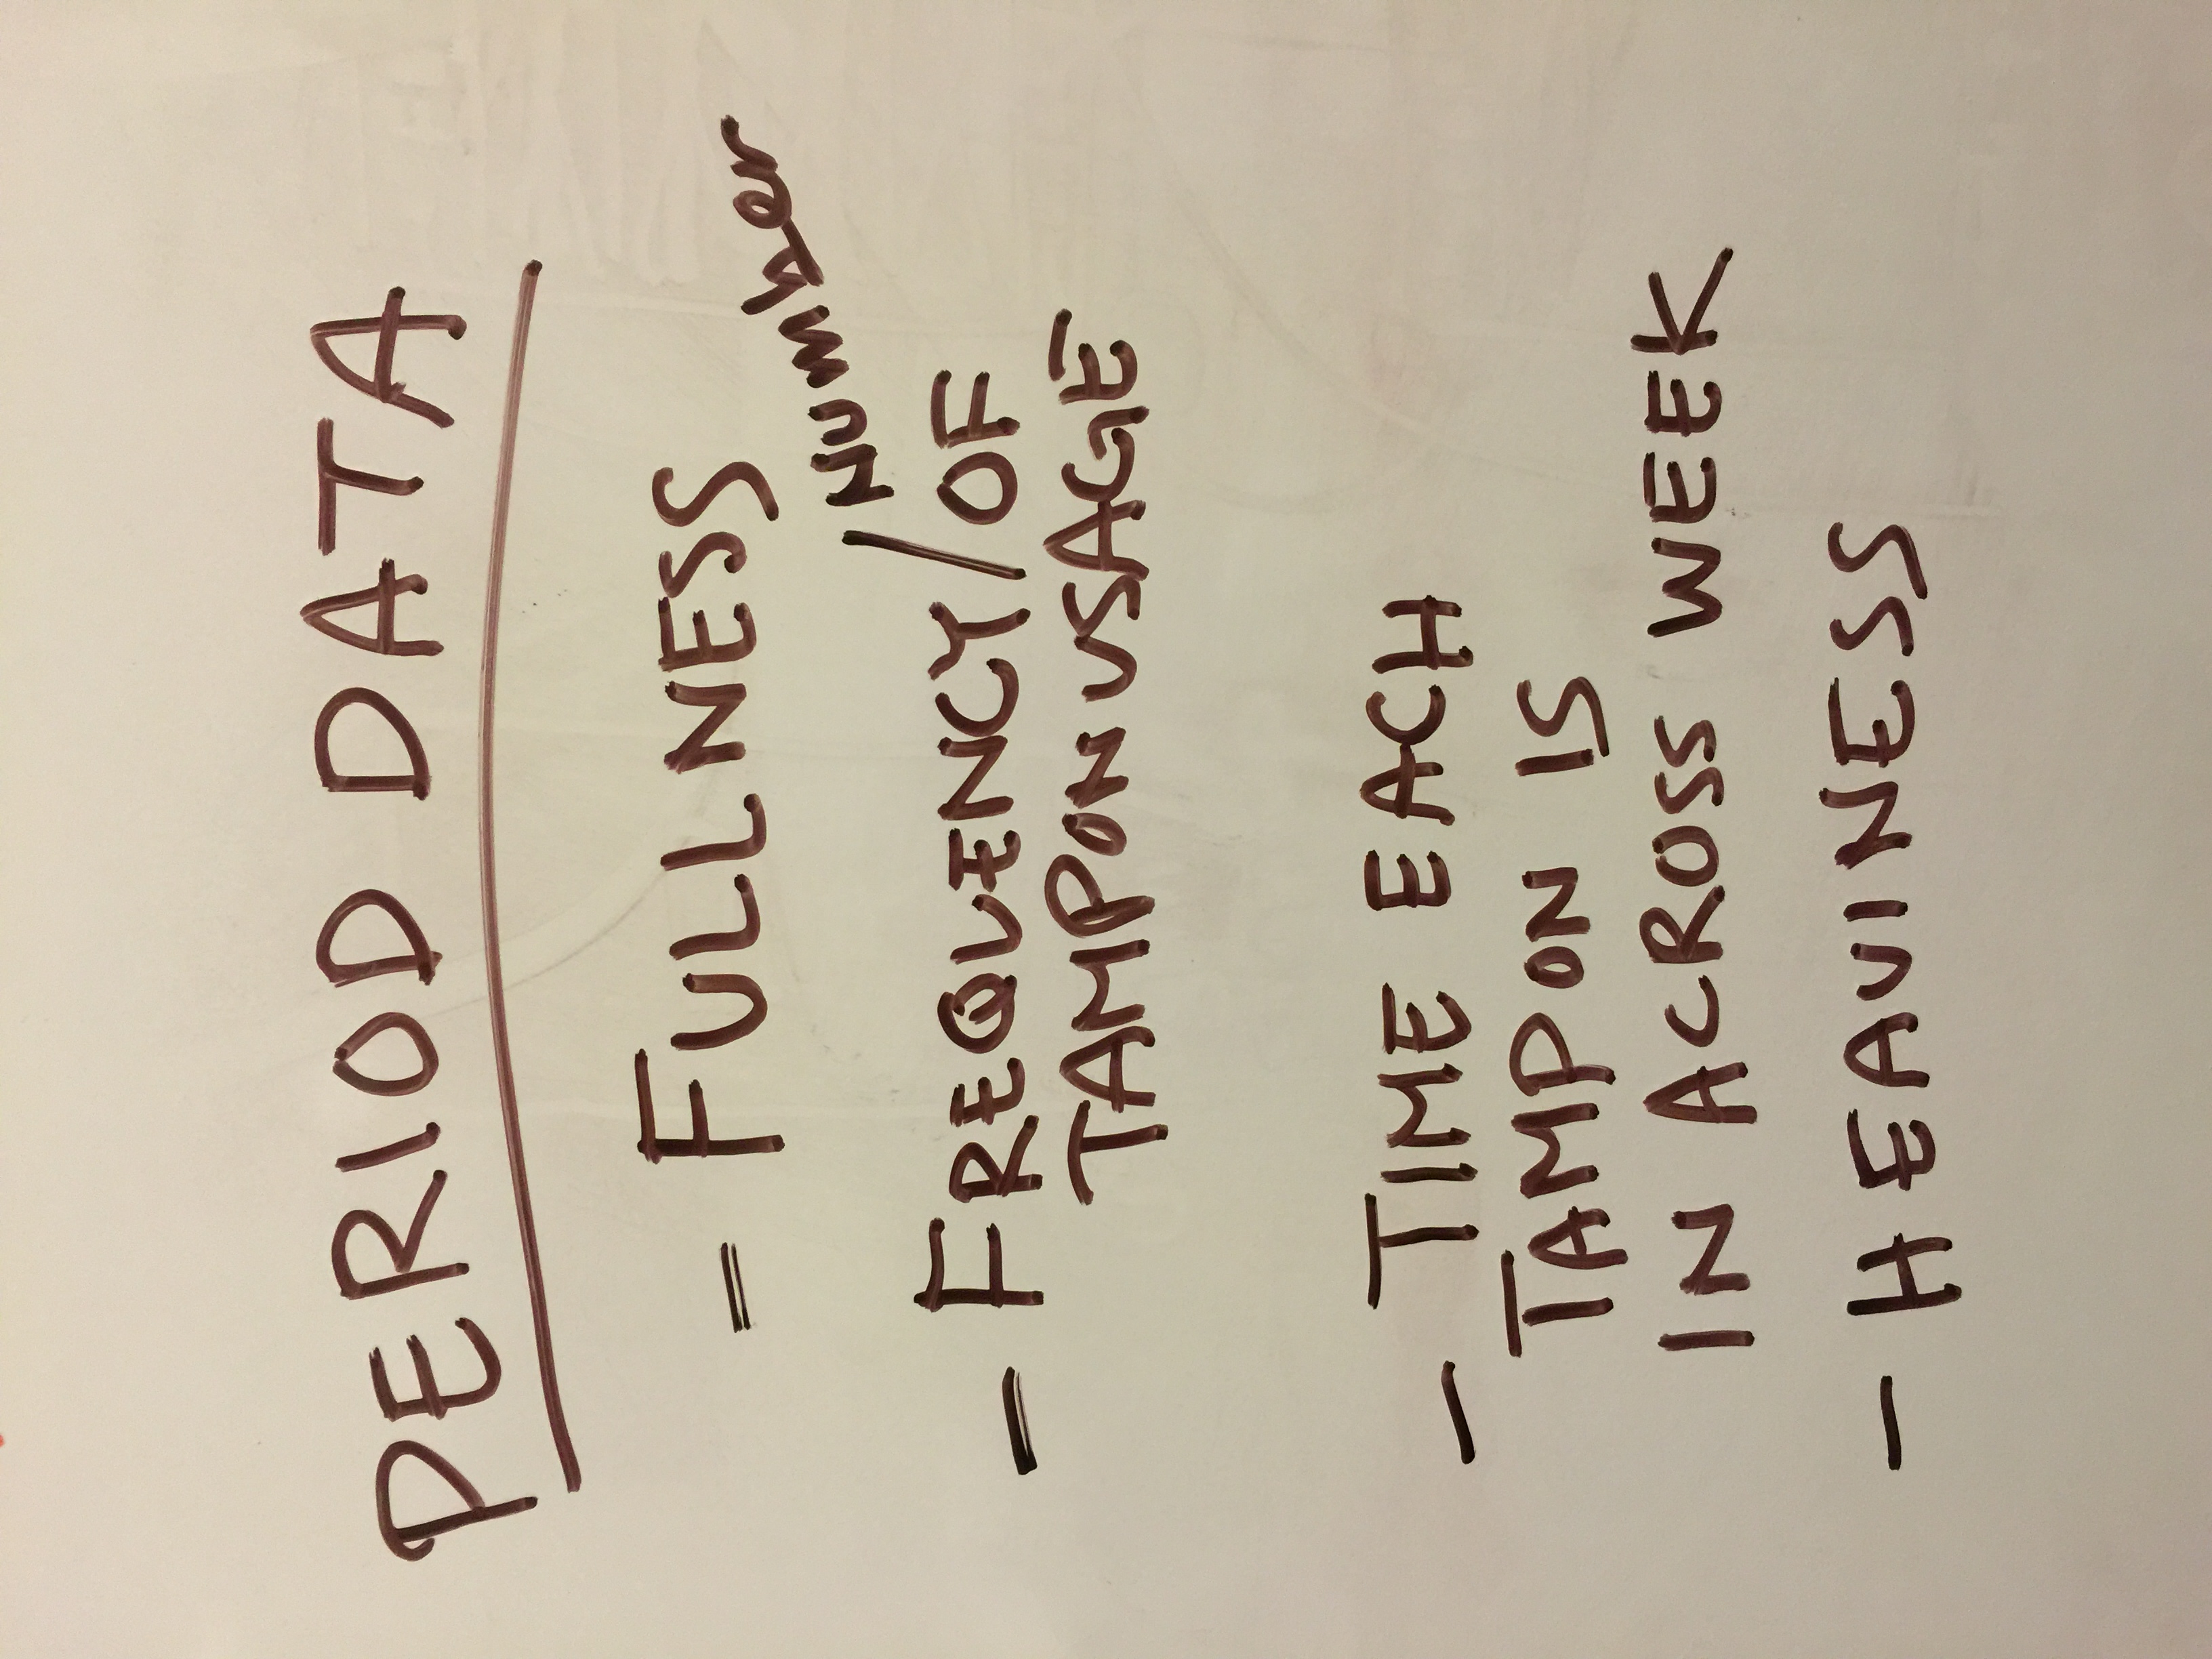 PERIOD DATA
- FULLNESS
Number
- FREQUENCY/OF
TAMPON USAGE
- TIME EACH
TAMPON IS
IN ACROSS WEEK
- HEAVINESS